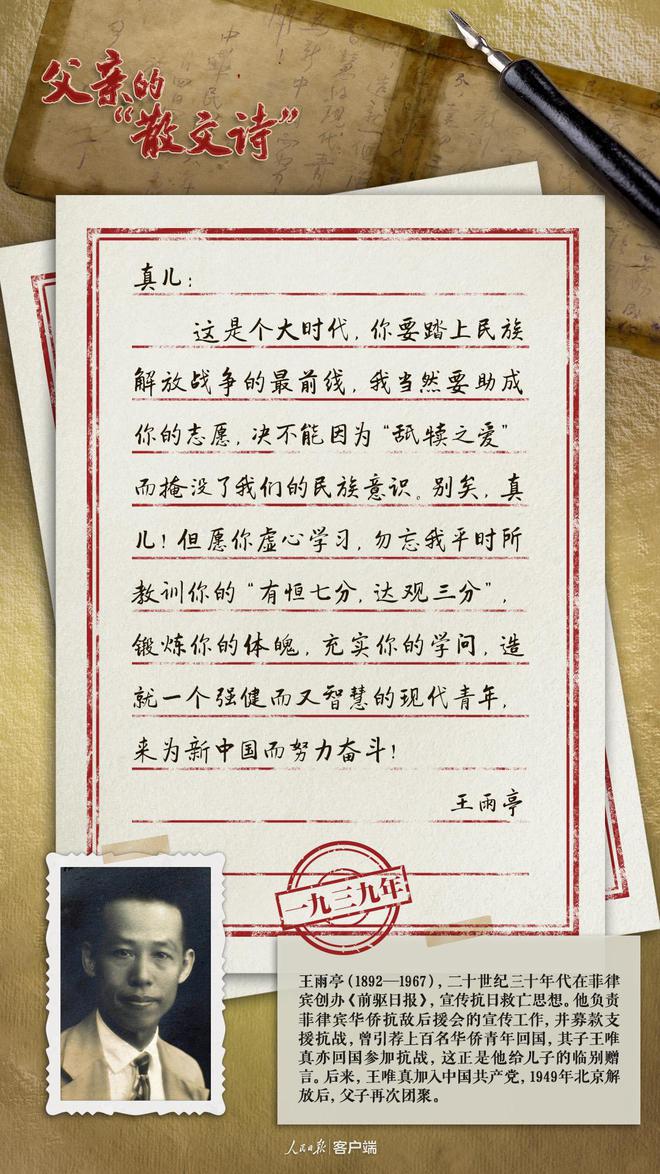 父亲的
“散文诗”
真儿：
这是个大时代，你要踏上民族
解放战争的最前线，我当然要助成
你的志愿，决不能因为“舐犊之爱”
而掩没了我们的民族意识。别矣，真
儿！但愿你虚心学习，勿忘我平时所
教训你的“有恒七分，达观三分”，
锻炼你的体魄，充实你的学问，造
就一个强健而又智慧的现代青年，
来为新中国而努力奋斗！
王雨亭
一九三九年
王雨亭（1892—1967），二十世纪三十年代在菲律
宾创办《前驱日报》，宣传抗日救亡思想。他负责
菲律宾华侨抗敌后援会的宣传工作，并募款支
援抗战，曾引荐上百名华侨青年回国，其子王唯
真亦回国参加抗战，这正是他给儿子的临别赠
言。后来，王唯真加入中国共产党，1949年北京解
放后，父子再次团聚。
人民日报 客户端